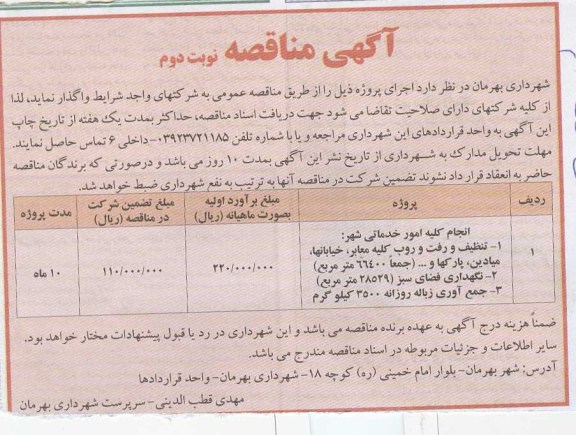 آگهی مناقصه نوبت دوم
شهرداری بهرمان در نظر دارد اجرای پروژه ذیل را از طریق مناقصه عمومی به شرکتهای واجد شرایط واگذار نماید، لذا
از کلیه شرکتهای دارای صلاحیت تقاضا می شود جهت دریافت اسناد مناقصه، حداکثر بمدت یک هفته از تاریخ چاپ
این آگهی به واحد قراردادهای این شهرداری مراجعه و یا با شماره تلفن ۰۳۹۲۳۷۲۱۱۸۵-داخلی ۶ تماس حاصل نمایند.
مهلت تحویل مدارک به شهرداری از تاریخ نشر این آگهی بمدت ۱۰ روز می باشد و درصورتی که برندگان مناقصه
حاضر به انعقاد قرار داد نشوند تضمین شرکت در مناقصه آنها به ترتیب به نفع شهرداری ضبط خواهد شد.
ردیف پروژه مبلغ برآورد اولیه بصورت ماهیانه (ریال) مبلغ تضمین شرکت در مناقصه (ریال) مدت پروژه
۱
انجام کلیه امور خدماتی شهر:
۱- تنظیف و رفت و روب کلیه معابر، خیابانها،
میادین، پارکها و ... (جمعاً ۶۶۴۰۰ متر مربع)
۲- نگهداری فضای سبز (۲۸۵۲۹ متر مربع)
۳- جمع آوری زباله روزانه ۳۵۰۰ کیلو گرم
۲۲۰/۰۰۰/۰۰۰ ۱۱۰/۰۰۰/۰۰۰ ۱۰ ماه
ضمناً هزینه درج آگهی به عهده برنده مناقصه می باشد و این شهرداری در رد یا قبول پیشنهادات مختار خواهد بود.
سایر اطلاعات و جزئیات مربوطه در اسناد مناقصه مندرج می باشد.
آدرس: شهر بهرمان- بلوار امام خمینی (ره) کوچه ۱۸- شهرداری بهرمان- واحد قراردادها
مهدی قطب الدینی- سرپرست شهرداری بهرمان